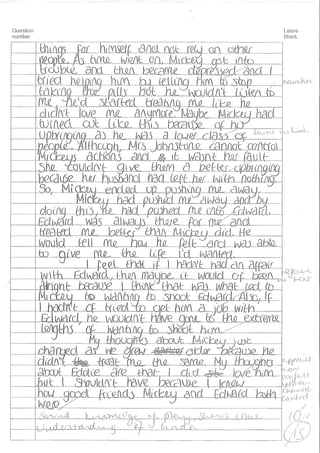 Question number
Leave Blank
things for himself and not rely on other
people. As time went on, Mickey got into
trouble and then became depressed and I
tried helping him by telling him to stop
taking the pills but he wouldn't listen to
me, he'd started treating me like he
didn't love me anymore. Maybe Mickey had
turned out like this because of his
upbringing as he was a lower class of
people. Although, Mrs Johnstone cannot control
Mickeys actions and it wasnt her fault
she couldn't give them a better upbringing
because her husband had left her with nothing
So, Mickey ended up pushing me away.
Mickey had pushed me away and by
doing this, he had pushed me onto Edward.
Edward was always there for me and
treated me better than Mickey did. He
would tell me how he felt and was able
to give me the life I'd wanted.
I feel that if I hadn't had an affair
with Edward, then maybe it would of been
alright because I think that was what led to
Mickey wanting to shoot Edward. Also, If
I hadn't of tried to get him a job with
Edward, he wouldn't have gone to the extreme
lengths of wanting to shoot him.
My thoughts about Mickey just
changed as we grew older because he
didn't treat me the same. My thoughts
about Eddie are that, I did love him
but I shouldn't have because I knew
how good friends Mickey and Edward both
were.
Sound knowledge of play, sound
understanding of Linda
10/15